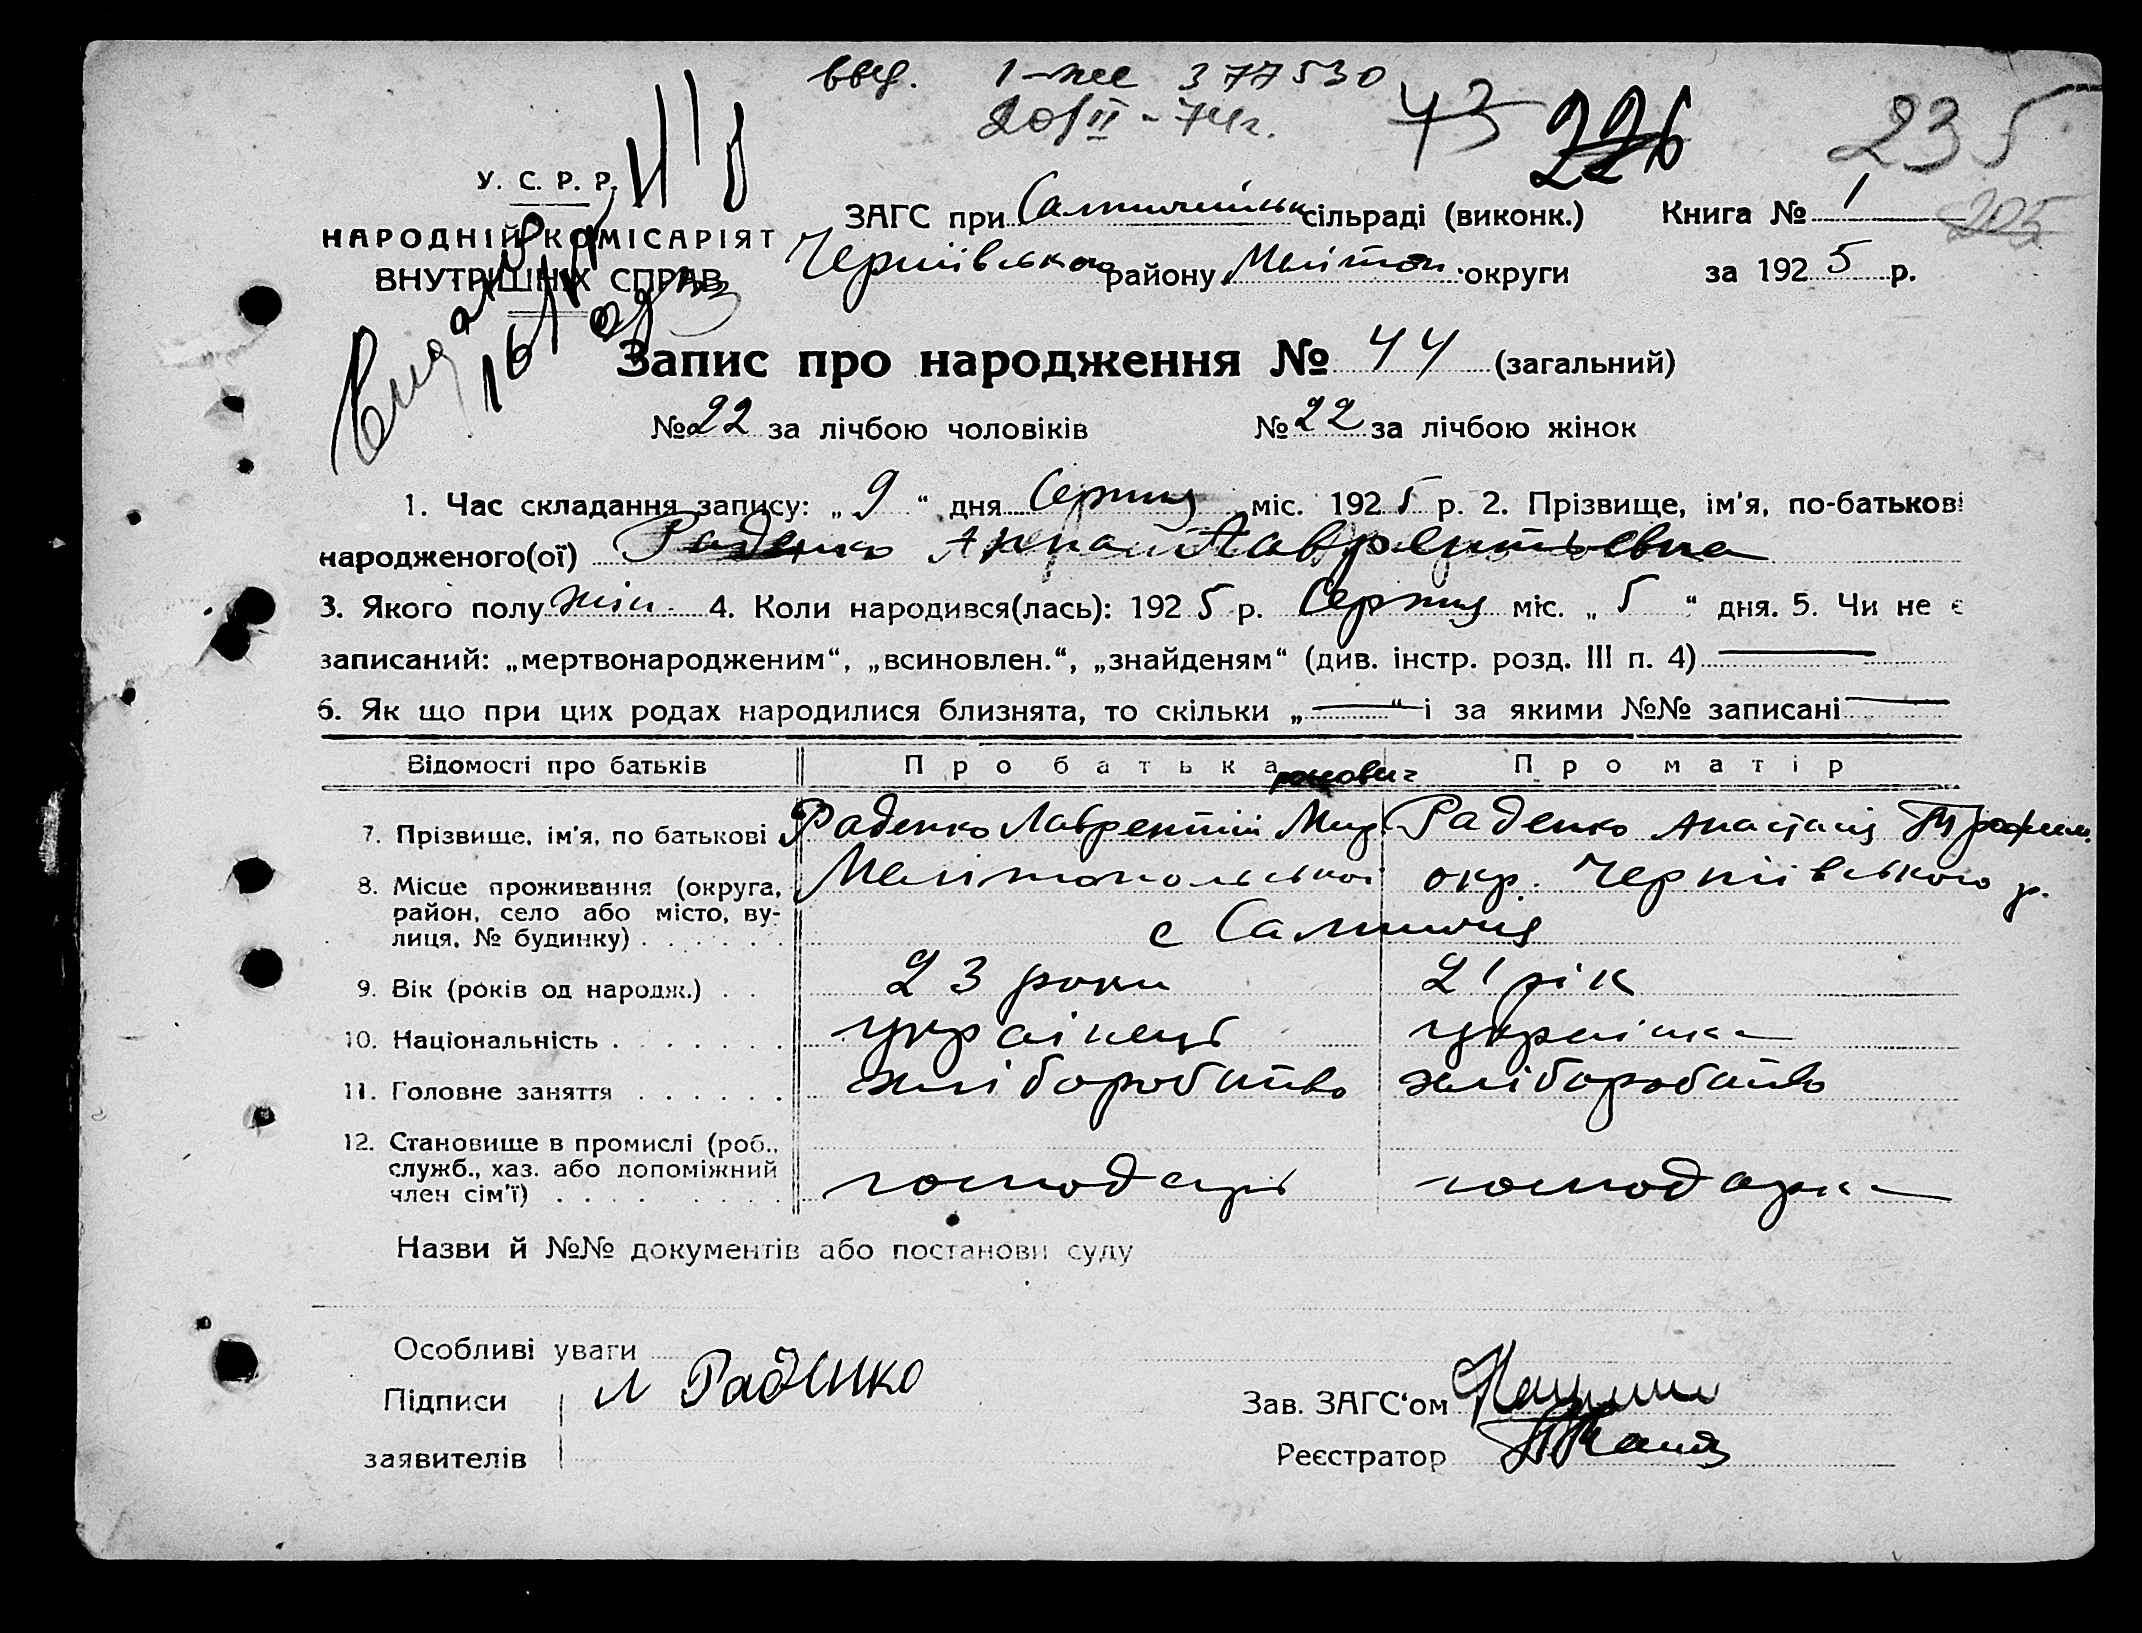 ввд. I-же 377530
20/II - 74г. 43 226 235
У. С. Р. Р.
НАРОДНІЙ КОМІСАРІЯТ
ВНУТРІШНІХ СПРАВ
ЗАГС при Салтичийськ сільраді (виконк.) Книга № 1 205
Черніївського району Меліtоп. округи за 1925 р.
Запис про народження № 44 (загальний)
№ 22 за лічбою чоловіків № 22 за лічбою жінок
1. Час складання запису: „9“ дня Серпня міс. 1925 р. 2. Прізвище, ім'я, по-батькові
народженого(ої) Раденко Анна Лаврентьевна
3. Якого полу жін. 4. Коли народився(лась): 1925 р. Серпня міс. „5“ дня. 5. Чи не є
записаний: „мертвонародженим“, „всиновлен.“, „знайденям“ (див. інстр. розд. III п. 4)
6. Як що при цих родах народилися близнята, то скільки „ “ і за якими №№ записані
Відомості про батьків Про батька Про матір
7. Прізвище, ім'я, по батькові Раденко Лаврентій Раденко Анастасія Трофим.
8. Місце проживання (округа, Мелітопольської окр. Черніївського р.
район, село або місто, ву- с Салтичия
лиця, № будинку)
9. Вік (років од народж.) 23 роки 21 рік
10. Національність українець українка
11. Головне заняття хліборобство хліборобство
12. Становище в промислі (роб.,
служб., хаз. або допоміжний господарь господарка
член сім'ї)
Назви й №№ документів або постанови суду
Особливі уваги
Підписи Л Раденко Зав. ЗАГС'ом
заявителів Реєстратор